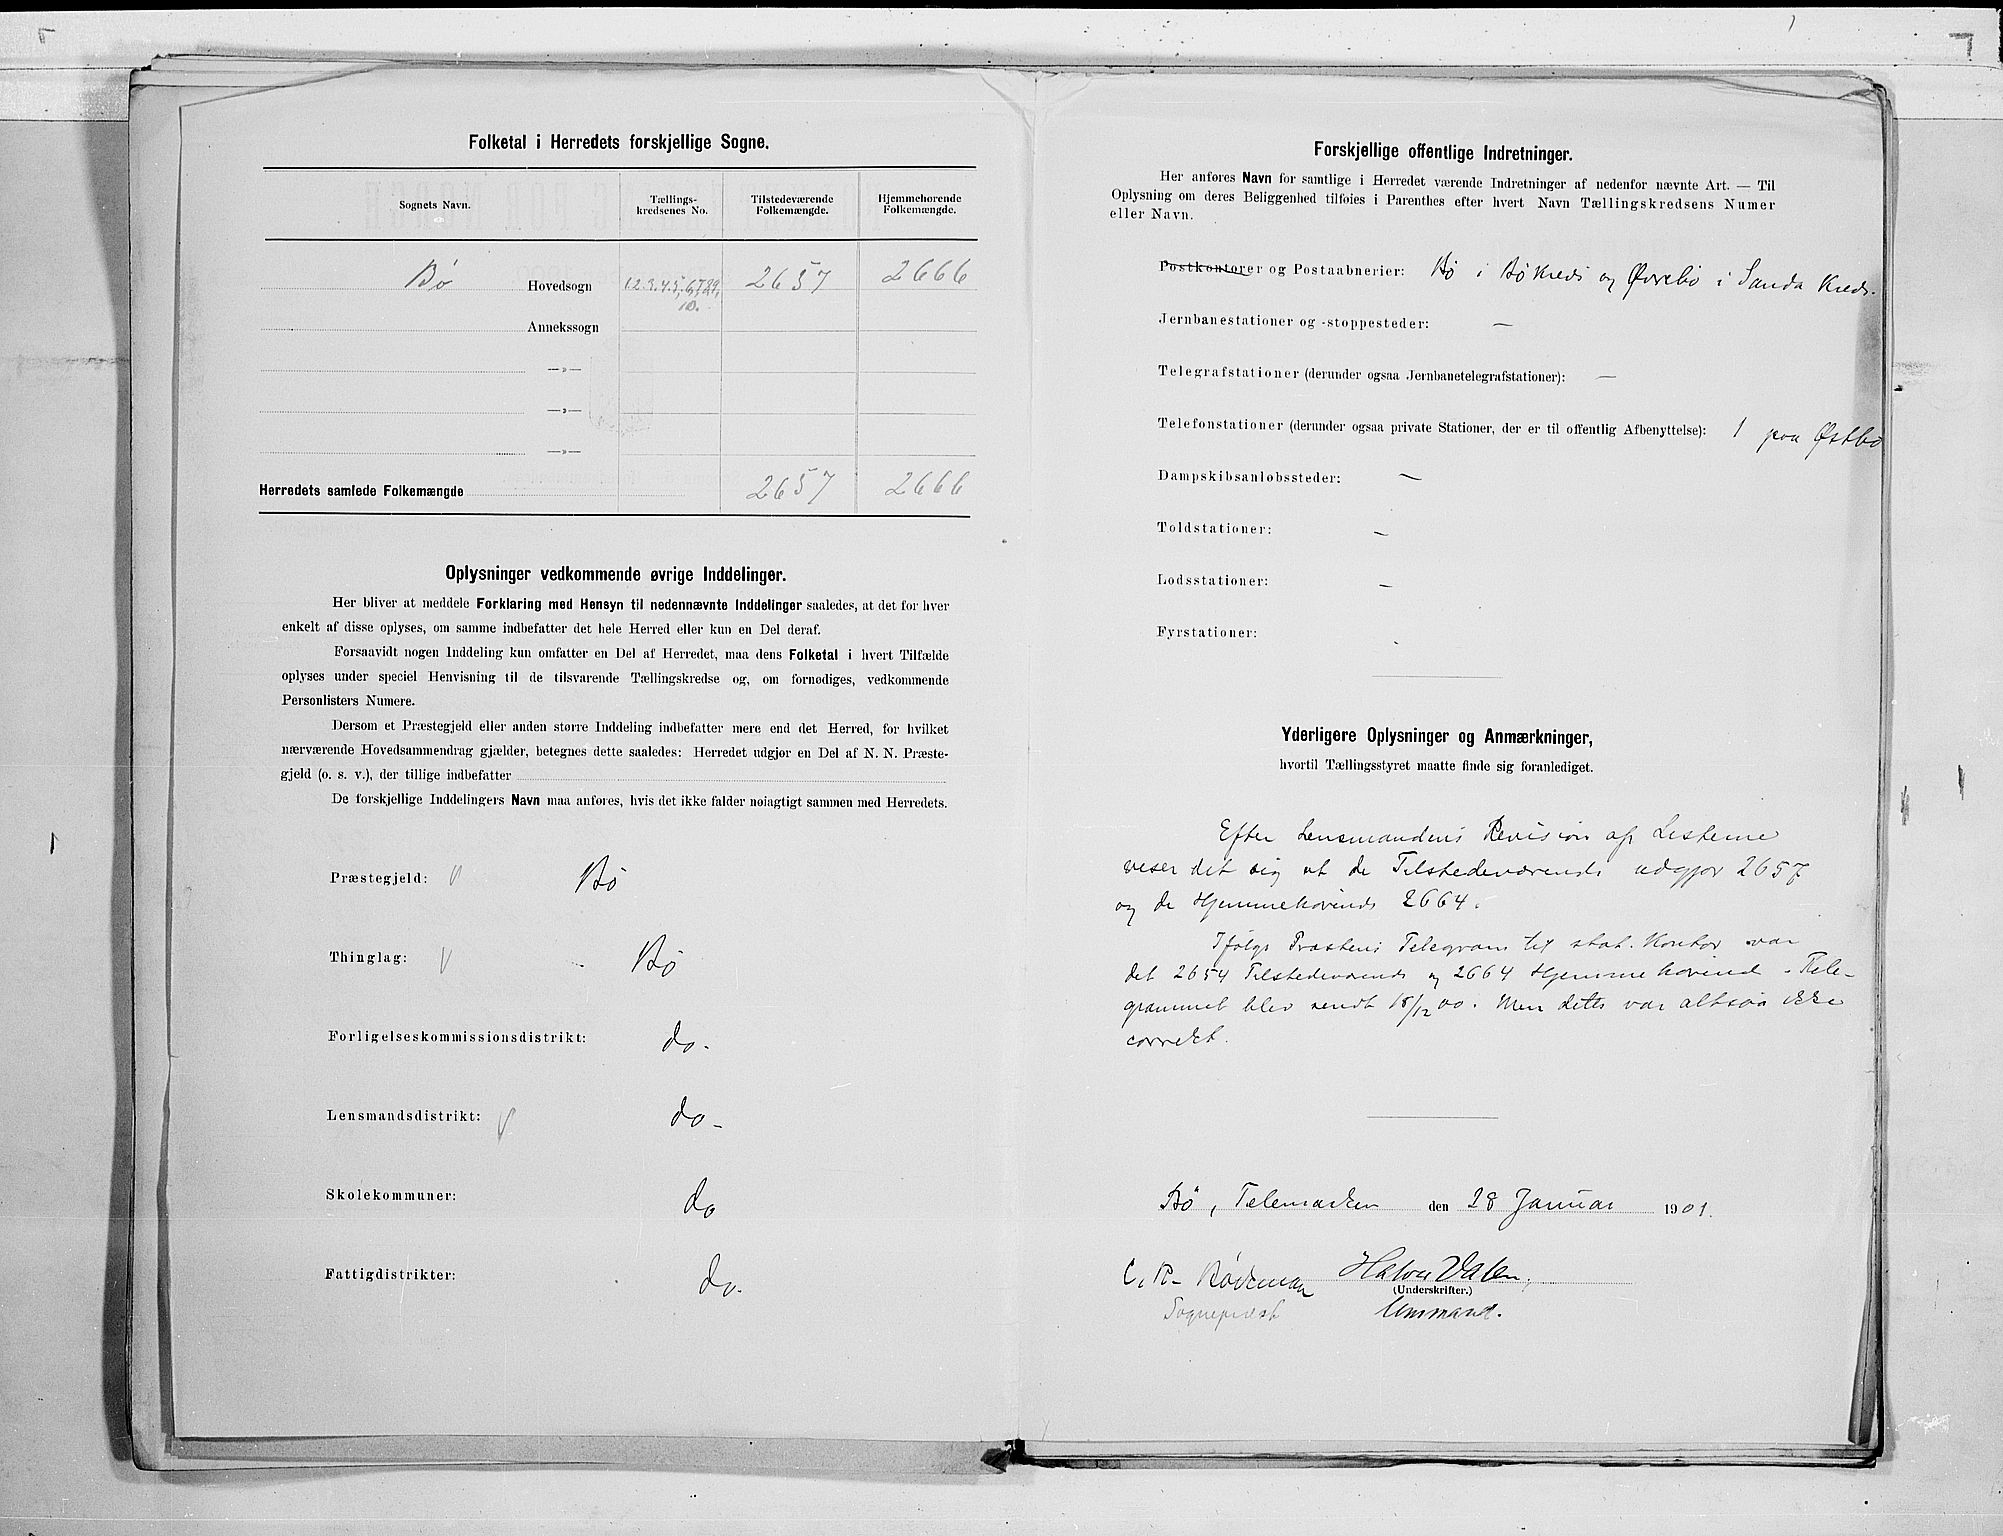 Folketal i Herredets forskjellige Sogne.
Sognets Navn.
Tællings-
kredsenes No.
Tilstedeværende
Folkemængde.
Hjemmehørende
Folkemængde.
Bø Hovedsogn 1.2.3.4.5, 6,7.8.9, 2657 2666
10.
Annekssogn
—»—
—»—
—»—
Herredets samlede Folkemængde 2657 2666
Oplysninger vedkommende øvrige Inddelinger.
Her bliver at meddele Forklaring med Hensyn til nedennævnte Inddelinger saaledes, at det for hver
enkelt af disse oplyses, om samme indbefatter det hele Herred eller kun en Del deraf.
Forsaavidt nogen Inddeling kun omfatter en Del af Herredet, maa dens Folketal i hvert Tilfælde
oplyses under speciel Henvisning til de tilsvarende Tællingskredse og, om fornødiges, vedkommende
Personlisters Numere.
Dersom et Præstegjeld eller anden større Inddeling indbefatter mere end det Herred, for hvilket
nærværende Hovedsammendrag gjælder, betegnes dette saaledes: Herredet udgjør en Del af N. N. Præste-
gjeld (o. s. v.), der tillige indbefatter
De forskjellige Inddelingers Navn maa anføres, hvis det ikke falder nøiagtigt sammen med Herredets.
Præstegjeld: Bø
Thinglag: Bø
Forligelseskommissionsdistrikt: do.
Lensmandsdistrikt: do.
Skolekommuner: do
Fattigdistrikter: do.
Forskjellige offentlige Indretninger.
Her anføres Navn for samtlige i Herredet værende Indretninger af nedenfor nævnte Art. — Til
Oplysning om deres Beliggenhed tilføies i Parenthes efter hvert Navn Tællingskredsens Numer
eller Navn.
Postkontorer og Postaabnerier: Bø i Bø Kreds og Øvrebø i Sanda Kreds.
Jernbanestationer og -stoppesteder: —
Telegrafstationer (derunder ogsaa Jernbanetelegrafstationer): —
Telefonstationer (derunder ogsaa private Stationer, der er til offentlig Afbenyttelse): 1 paa Østbø
Dampskibsanløbssteder: —
Toldstationer: —
Lodsstationer: —
Fyrstationer:
Yderligere Oplysninger og Anmærkninger,
hvortil Tællingsstyret maatte finde sig foranlediget.
Efter Lensmandens Revision af Listerne
viser det sig at de Tilstedeværende udgjør 2657
og de Hjemmehørende 2664.
Ifølge Præstens Telegram til stat. Kontor var
det 2654 Tilstedeværende og 2664 Hjemmehørende. Tele-
grammet blev sendt 18/12 00. Men dette var altsaa ikke
correkt.
Bø, Telemarken den 28 Januar 1901.
C. R. Halvor Valen,
(Underskrifter.)
Sognepræst Lensmand.